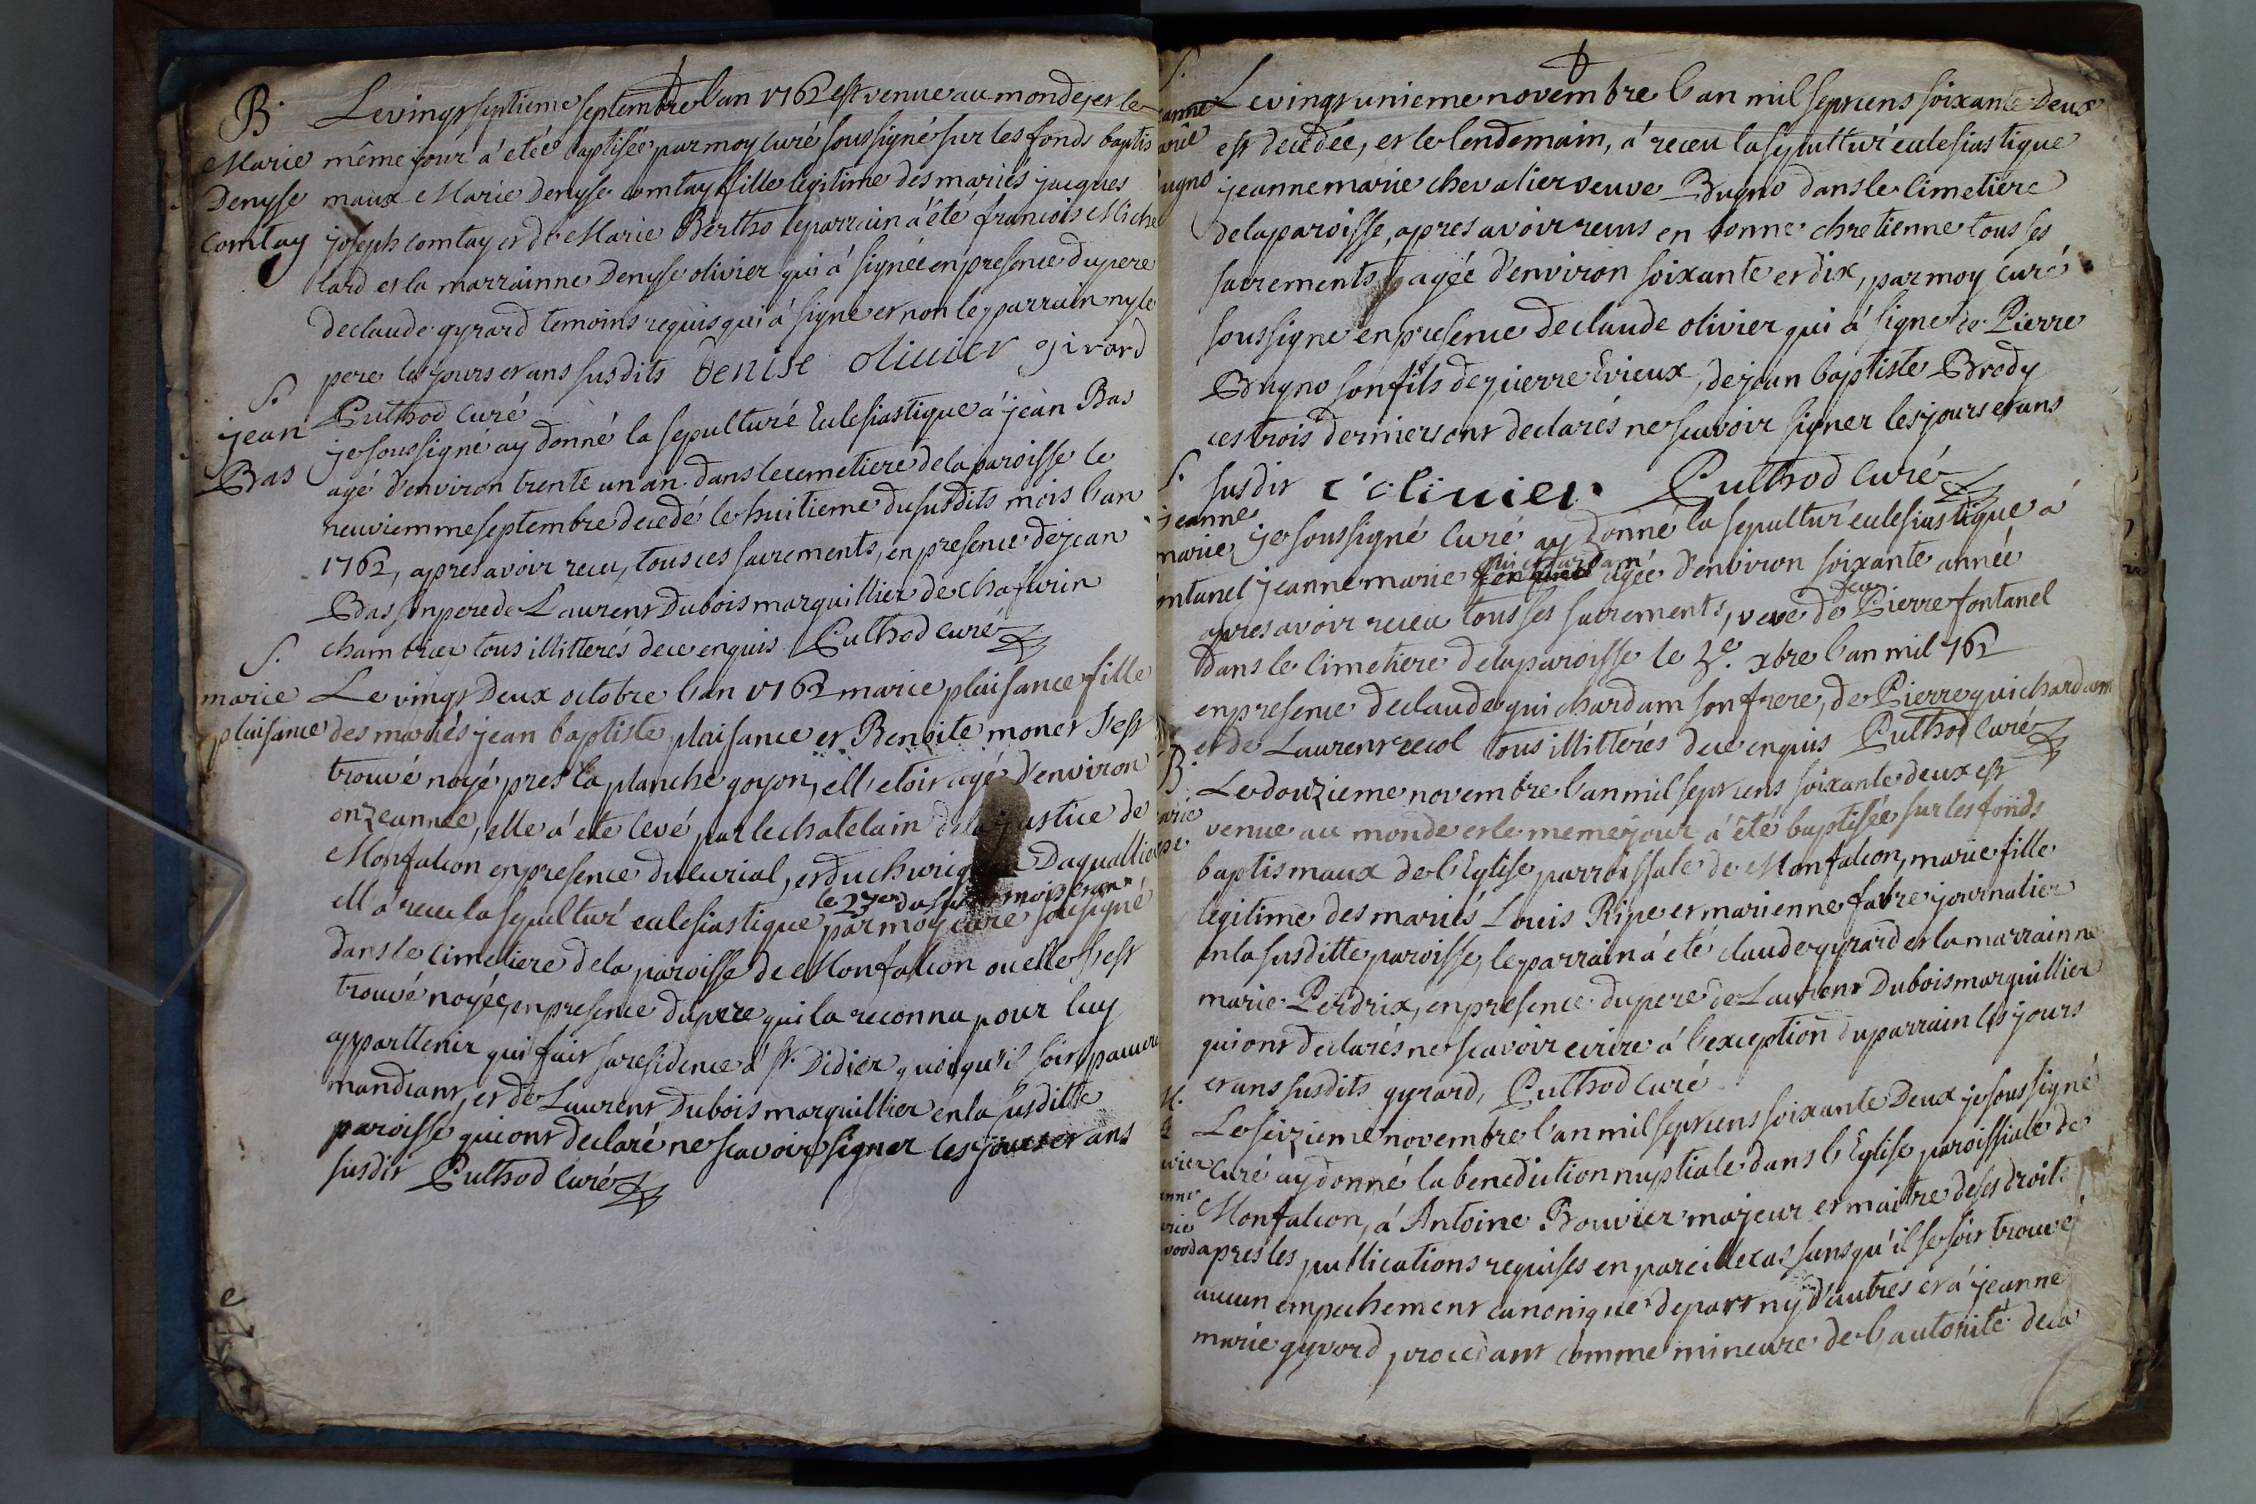 B.
Marie
Denyse
Comtay
Le vingt septieme septembre l'an 1762 est venue au monde, et le
même jour a étée baptisée par moy curé soussigné sur les fonds baptis
maux Marie Denyse Comtay fille legitime des mariés jacques
joseph Comtay et de Marie Bertho le parrain a été francois Miche
lard et la marrainne Denyse olivier qui a signée en presence du pere
de claude gyrard temoins requis qui a signé et non le parrain ny le
pere les jours et ans susdits Denise olivier girard
Puthod Curé
S.
jean
Bas
je soussigné ay donné la sepulturé Eclesiastique a jean Bas
agé d'environ trente un an dans le cemetiere de la paroisse le
neuviemme septembre decedé le huitieme du susdits mois l'an
1762, apres avoir receu, tous ces sacrements, en presence de jean
Bas son pere de Laurent Dubois marguillier de chafurin
chambrier tous illitterés de ce enquis Puthod Curé
S.
marie
plaisance
Le vingt Deux octobre l'an 1762 marie plaisance fille
des mariés jean baptiste plaisance et Benoite monet s'est
trouvé noyé pres la planche goyon, ell' etoit agé d'environ
onze année, elle a été levé par le chatelain de la justice de
Monfalcon en presence du curial, et du Daquallier
ell' a receu la sepulturé eclesiastique par moy curé sousigné
le 23e du mois et an
dans le cimetiere de la paroisse de Monfalcon ou elle s'est
trouvé noyée, en presence du pere qui la reconnu pour luy
apparttenir qui fait sa residence a St. Didier quoiqu'il soit pauvre
mandiant, et de Laurent Dubois marguillier en la susditte
paroisse qui ont declaré ne scavoir signer les jours et ans
susdit Puthod Curé
S.
anne
arie
ugno
Le vingt unieme novembre l'an mil sept cens soixante Deux
est decedée, et le lendemain, a receu la sepultur' eclesiastique
jeanne marie chevalier veuve Bugno dans le Cimetiere
de la paroisse, apres avoir receus en bonne chretienne tous ses
sacrements, agée d'environ soixante et dix, par moy Curé
soussigne en presence de claude olivier qui a signe de Pierre
Bugno son fils de pierre Evieux, de jean baptiste Brody
ces trois derniers ont declarés ne scavoir signer les jours et ans
susdit C olivier Puthod Curé
S.
jeanne
marie
ontanel
je soussigné Curé ay donné la sepultur' eclesiastique a
jeanne marie guichardam agée d'environ soixante année
apres avoir receu tous ses sacrements, veve de feu Pierre fontanel
dans le Cimetiere de la paroisse le 3e. xbre l'an mil 762
en presence de claude guichardam son frere, de Pierre guichardam
et de Laurent recol tous illitterés de ce enquis Puthod Curé
B.
arie
pe
Le douzieme novembre l'an mil sept cens soixante deux est
venue au monde et le meme jour a été baptisée sur les fonds
baptismaux de l'Eglise parroissale de Monfalcon, marie fille
legitime des mariés Louis Ripe et marienne fabre journalier
en la susditte paroisse, le parrain a été claude gyrard et la marrainne
marie Perdrix, en presence du pere de Laurent Dubois marguillier
qui ont declarés ne scavoir ecrire a l'exception du parrain les jours
et ans susdits gyrard, Puthod Curé
M.
uvier
anne
rie
vood
Le seizieme novembre l'an mil sept cens soixante Deux je sous signé
Curé ay donné la benediction nuptiale dans l'Eglise paroissiale de
Monfalcon, a Antoine Bouvier majeur et maitre de ses droits
apres les publications requises en pareille cas sans qu'il se soit trouvé
aucun empechement canonique de part ny d'autres et a jeanne
marie gyvord procedant comme mineure de l'autorité de sa